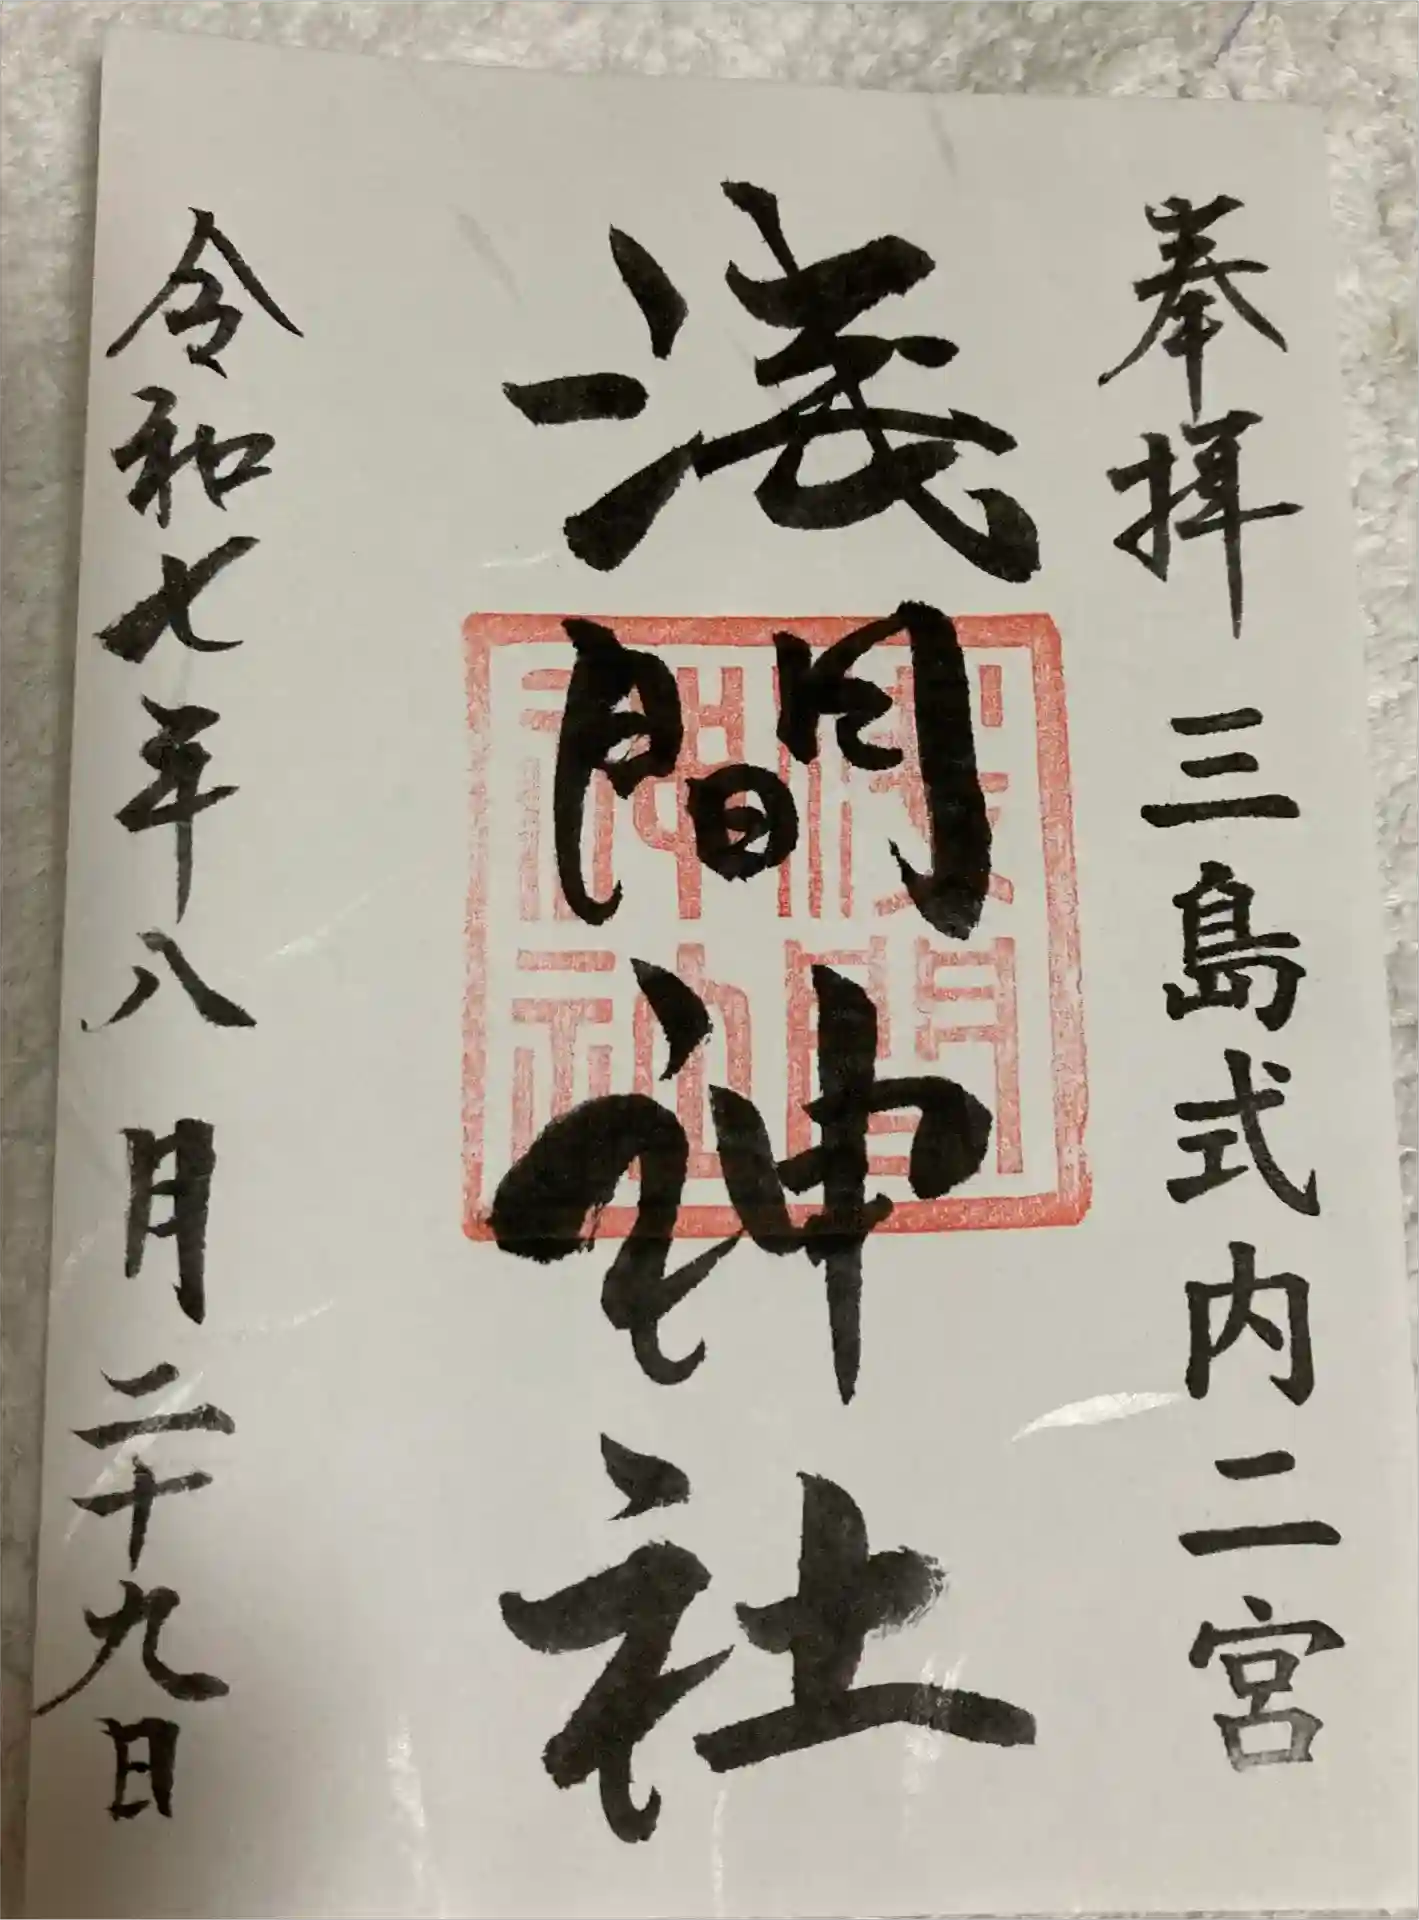 奉拝 三島式内二宮
浅間神社
令和七年八月二十九日
浅間
神社